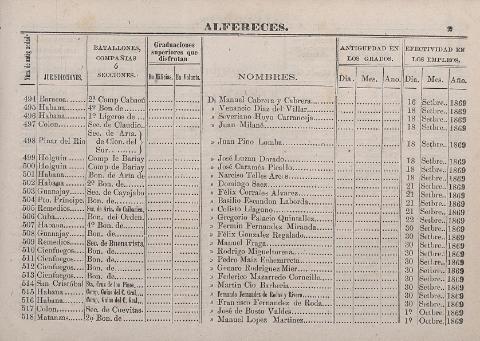 ALFERECES.
Núm. JURISDICCIONES. BATALLONES, COMPAÑIAS ó SECCIONES. Graduaciones superiores que disfrutan En Milicias. En Volunts. NOMBRES. ANTIGUEDAD EN LOS GRADOS. Dia. Mes. Año. EFECTIVIDAD EN LOS EMPLEOS. Dia. Mes. Año.
494 Baracoa. 2ª Comp D. Manuel Cabrera y Cabrera 16 Setbre. 1869
495 Habana 4º Bon. de » Venancio Diaz del Villar 18 Setbre. 1869
496 Habana 1º Ligeros de » Severiano Hoyo Carranceja 18 Setbre. 1869
497 Colon. Sec. de Claudio. » Juan Milané 18 Setbre. 1869
498 Pinar del Rio Sec. de Arta. de Clon. del Sur. » Juan Pino Lomba 18 Setbre. 1869
499 Holguin Comp de Bariay » José Lozan Dorado 18 Setbre. 1869
500 Holguin Comp de Bariay » José Caramés Picallo 18 Setbre. 1869
501 Habana Bon. de Arta di » Narciso Telles Arcis 18 Setbre. 1869
502 Habana 2º Bon. de » Domingo Saez 21 Setbre. 1869
503 Guanajay Sec. de Cayajabo » Félix Corrales Alvarez 21 Setbre. 1869
504 Pto. Príncipe. Bon. de » Basilio Escundon Laborda 21 Setbre. 1869
505 Remedios Sec. de Arta. de Caibarien » Calisto Llagono 21 Setbre. 1869
506 Cuba Bon. del Orden. » Gregorio Palacio Quintalles 22 Setbre. 1869
507 Habana 4º Bon. de » Fermin Fernandez Miranda 30 Setbre. 1869
508 Guanajay Bon. de » Félix Gonzalez Regalado 30 Setbre. 1869
509 Remedios Sec. de Buenavista » Manuel Fraga 30 Setbre. 1869
510 Cienfuegos Bon. de » Rodrigo Miguelturena 30 Setbre. 1869
511 Cienfuegos Bon. de » Pedro Maiz Echavarreta 30 Setbre. 1869
512 Cienfuegos Bon. de » Genaro Rodriguez Mier 30 Setbre. 1869
513 Cienfuegos Bon. de » Federico Mazarredo Cornellio 30 Setbre. 1869
514 San Cristóbal Sta. Cruz de los Pinos » Martin Cio Barberia 30 Setbre. 1869
515 Habana Comp. Guias del C. Gral. » Fernando Fernandez de Rodas y Rivera 30 Setbre. 1869
516 Habana Comp. Guias del C. Gral. » Francisco Fernandez de Roda 30 Setbre. 1869
517 Colon. Sec. de Cuevitas » José de Busto Valdes 1º Octbre. 1869
518 Matanzas 2º Bon. de » Manuel Lopez Martinez 1º Octbre. 1869